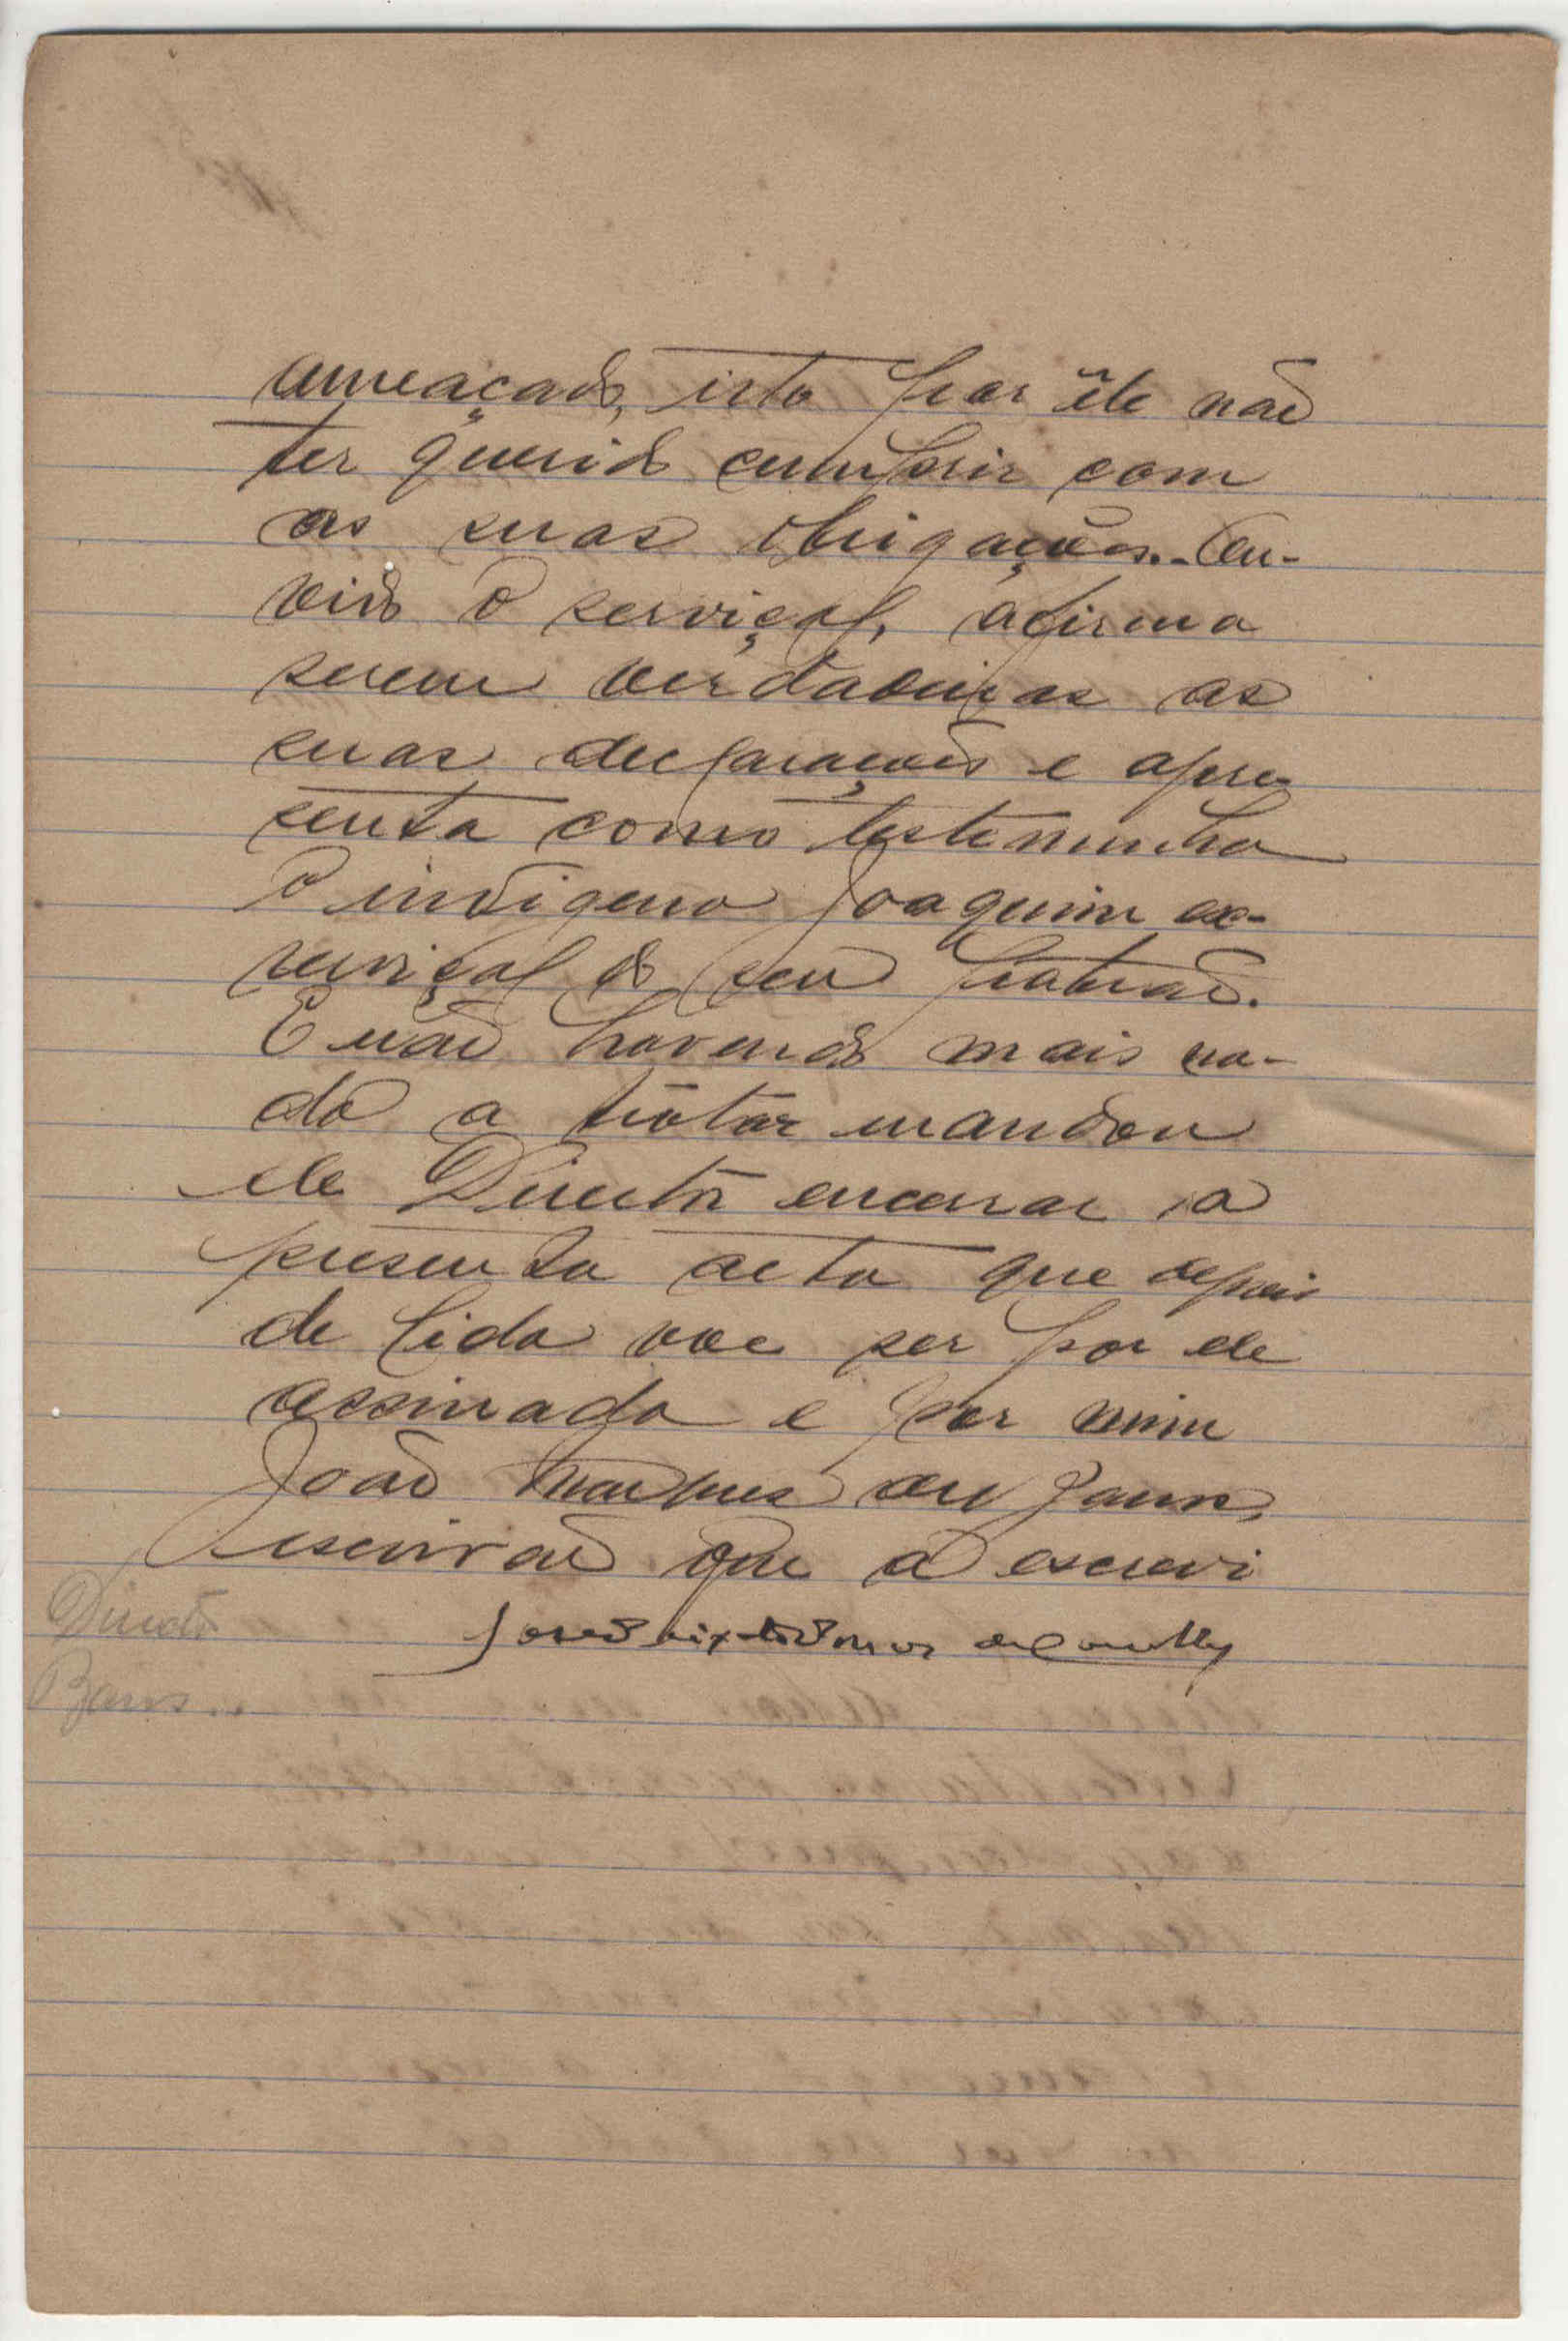 ameaçado, isto por êle não
ter querido cumprir com
as suas obrigações. - Ou-
vido o serviçal, afirma
serem verdadeiras as
suas declarações e apre-
senta como testemunha
o indigena Joaquim ex-
serviçal do seu patrão.
E não havendo mais na-
da a tratar mandou
ele Director encerrar a
presente acta que depois
de lida vae ser por ele
assinada e por mim
João Marques
escrivão que a escrevi
José
Director